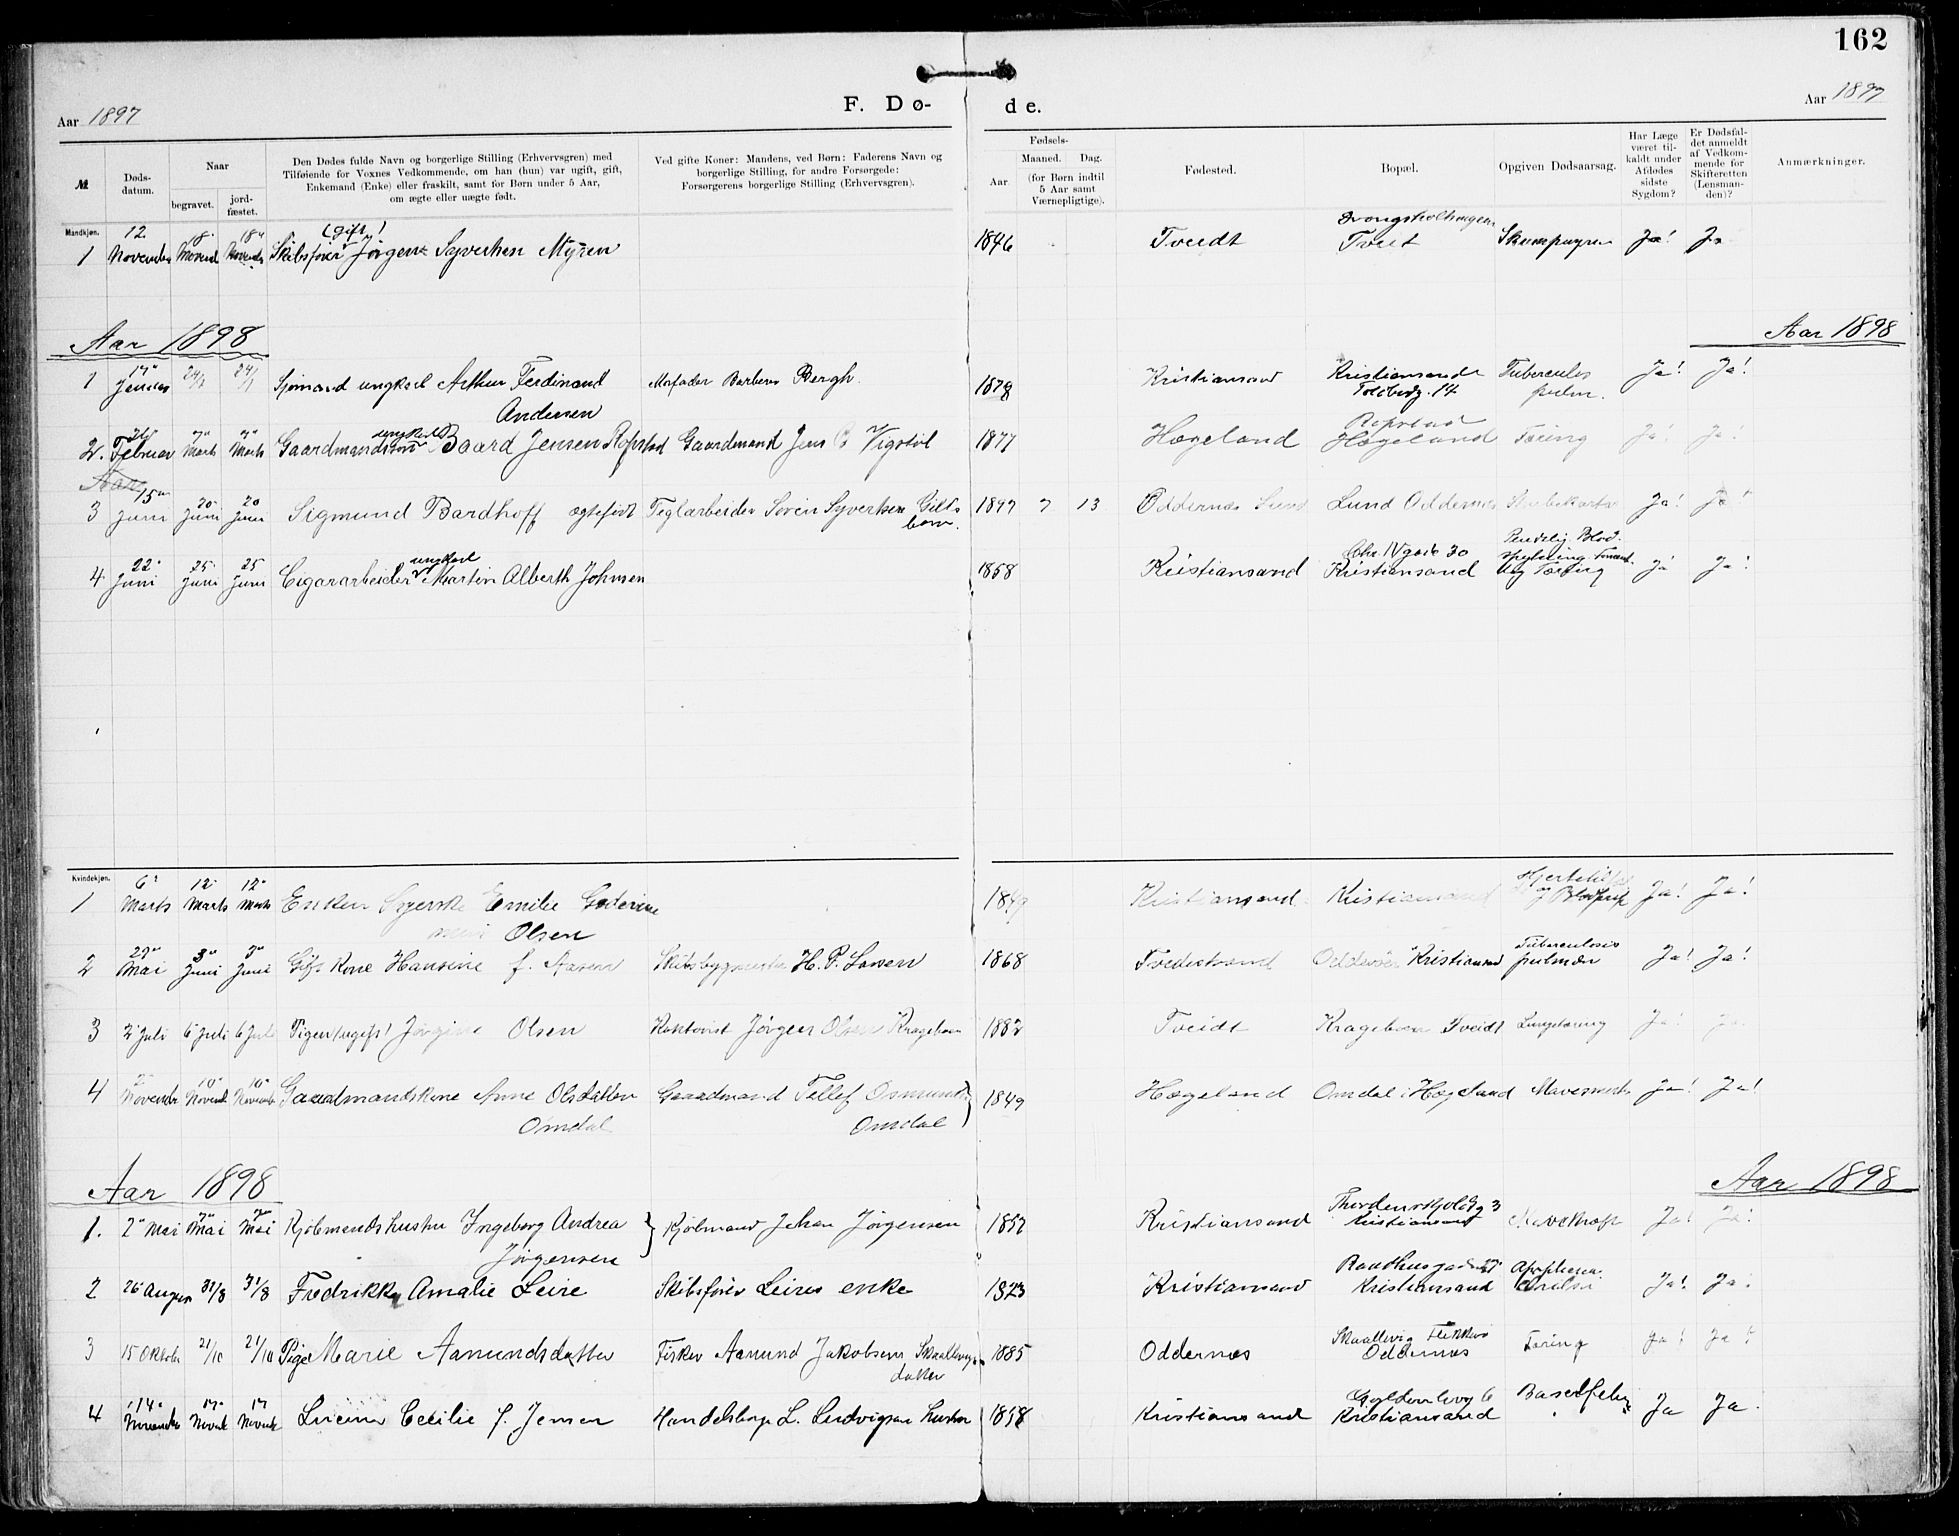 162
Aar 1897
F. Dø-
de.
Aar 1897
№
Døds-
datum.
Naar
begravet.
jord-
fæstet.
Den Dødes fulde Navn og borgerlige Stilling (Erhvervsgren) med
Tilføiende for Voxnes Vedkommende, om han (hun) var ugift, gift,
Enkemand (Enke) eller fraskilt, samt for Børn under 5 Aar,
om ægte eller uægte født.
Ved gifte Koner: Mandens, ved Børn: Faderens Navn og
borgerlige Stilling, for andre Forsørgede:
Forsørgerens borgerlige Stilling (Erhvervsgren).
Fødsels-
Aar.
Maaned. Dag.
(for Børn indtil
5 Aar samt
Værnepligtige).
Fødested.
Bopæl.
Opgiven Dødsaarsag.
Har Læge
været til-
kaldt under
Afdødes
sidste
Sygdom?
Er Dødsfal-
det anmeldt
af Vedkom-
mende for
Skifteretten
(Lensman-
den)?
Anmærkninger.
Mandkjøn.
12 18 18 (gift!
1 November Novemb Novemb Skibsfører Jørgen Syvertsen Myren 1846 Tveidt Tveit Ja! Ja
Aar 1898
Aar 1898
1 17 Januar 24/1 24/1 Sjømand ungkarl Arthur Ferdinand Morfader Barberer Bergh. 1878 Kristiansand Kristiansand Tuberculos Ja! Ja!
Andersen Toldbodg. 14 pulm.
26 ungkarl Ropstad
2. Februar Marts Marts Gaardmandssøn Baard Jensen Ropstad Gaardmand Jens Vigstøl 1877 Hægeland Hægeland Tæring Ja! Ja!
15 20 20
3 Juni Juni Juni Sigmund Bardhoff ægtefødt Teglarbeider Søren Syvertsen Gills 1897 7 13 Oddernæs Lund Lund Oddernes Ja! Ja!
barn.
22 25 25 ungkarl Chr. IV gade 30 Blod
4 Juni Juni Juni Cigararbeider Martin Alberth Johnsen 1858 Kristiansand Kristiansand og Tæring Ja Ja!
Kvindekjøn.
6 12 12
1 Marts Marts Marts Enken Emilie 1849 Kristiansand Kristiansand og Ja! Ja!
Olsen
29 3 3 Tuberculosis
2 Mai Juni Juni Gift Kone Hansine f. Aasen Skibsbygmester H. P. Larsen 1868 Tvedestrand Odderøen Kristiansand pulmon Ja! Ja!
3 2 Juli 6 Juli 6 Juli Pigen (ugift) Jørgine Olsen Jørgen Olsen Krageboen 1882 Tveidt Krageboen Tveidt Lungetæring Ja! Ja
10 10
4 November Novemb November Gaardmandskone Anne Olsdatter Gaardmand Tellef Osmunds 1849 Hægeland Omdal i Hægeland Ja! Ja!
Omdal Omdal
Aar 1898
Aar 1898
Thordenskjoldsg 3
1. 2 Mai 7 Mai 7 Mai Kjøbmands hustru Ingeborg Andrea Kjøbmand Johan Jørgensen 1852 Kristiansand Kristiansand Ja! Ja!
Jørgensen
2 26 August 31/8 31/8 Fredrikke Amalie Leire Skibsfører Leires enke 1823 Kristiansand Kristiansand Ja! Ja!
Skaallevig Flekkerø
3 15 Oktober 21/10 21/10 Pige Marie Aanundsdatter Fisker Aanund Jakobsens Skaallevig 1885 Oddernæs Oddernæs Tæring Ja! Ja!
datter
14 17 17 Gyldenløvg 6
4 November Novemb Novemb Cecilie f. Jensen L. Ludvigsens hustru 1858 Kristiansand Kristiansand Ja Ja